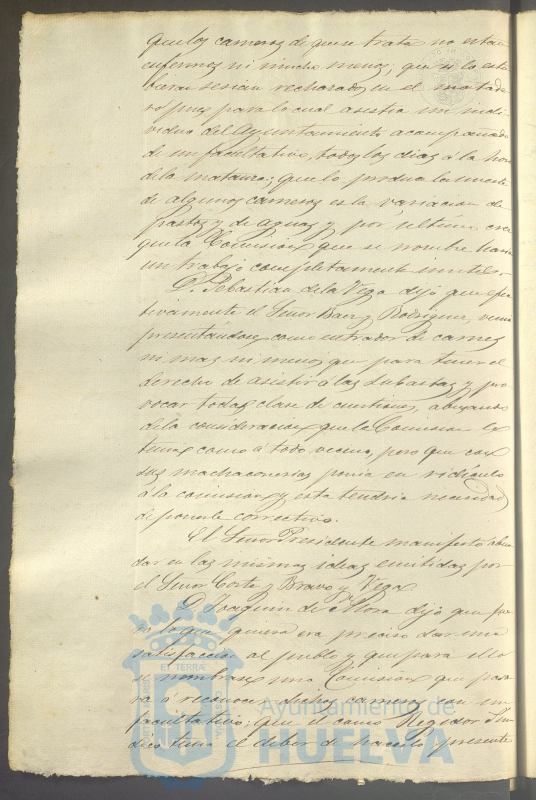 que los carneros de que se trata no estan
enfermos ni mucho menos; que si lo estu
bieran serian rechazados en el matade
ro pues para lo cual asistia un indi-
viduo del Ayuntamiento acompañado
de un facultativo todos los dias á la hora
de la matanza; que lo produce la muerte
de algunos carneros es la variacion de
pastos y de aguas y por ultimo cree
que la Comision que se nombre haria
un trabajo completamente inutil.
D. Sebastian de la Vega dijo que efec
tivamente el Señor Baez y Rodriguez, venia
presentandose como entrador de carnes
ni mas ni menos que para tener el
derecho de asistir á las subastas y pro
vocar todas clase de cuestiones, abusando
de la consideracion que la Comision le
tenia como á todo vecino, pero que con
sus machaconerias ponia en ridiculo
á la comision y esta tendria necesidad
de ponerle correctivo.
El Señor Presidente manifestó abun
dar en las mismas ideas emitidas por
el Señor Corte y Bravo y Vega.
D. Joaquin de Mora dijo que fue
ra lo que quiera era preciso dar una
satisfaccion al pueblo y que para ello
se nombrase una Comision que pasa
ra á reconocer dichos carneros con un
facultativo; que el como Regidor Sin
dico tenia el deber de hacerlo presente
ET TERRÆ
Ayuntamiento de
HUELVA